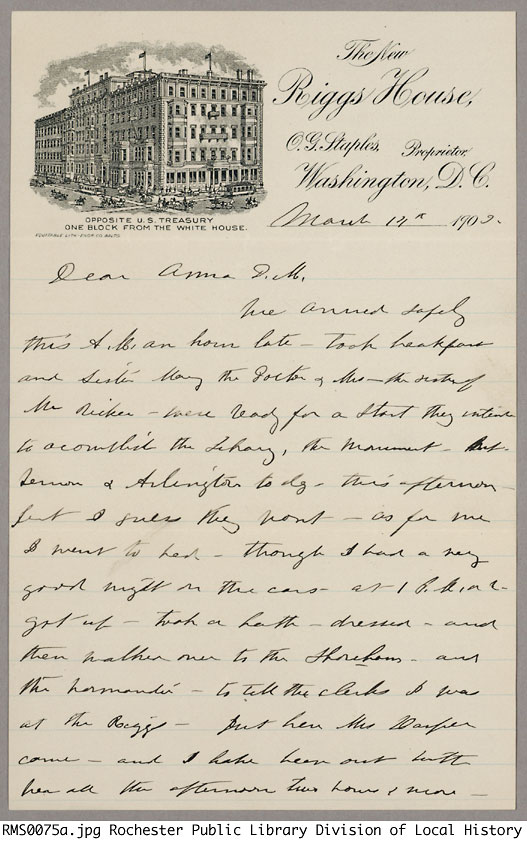 The New
Riggs House,
O. G. Staples, Proprietor,
Washington, D. C.
OPPOSITE U.S. TREASURY
ONE BLOCK FROM THE WHITE HOUSE.
March 14th 190
Dear Anna D. M.
We arrived safely
this A. M. an hour late - took breakfast
and Sister Mary the Doctor & Mrs - the sister of
Mr Ricker - were ready for a start they intend
to acomplish the Library, the Monument -
Vernon & Arlington to dy - this afternoon -
but I guess they wont - as for me
I went to bed - though I had a very
good night on the cars - at 1 P. M. or 2 -
got up - took a bath - dressed - and
then walked over to the Shoreham - and
the Normandie - to tell the clerks I was
at the Riggs - but here Mrs Harper
came - and I have been out with
her all the afternoon two hours & more -
RMS0075a.jpg Rochester Public Library Division of Local History